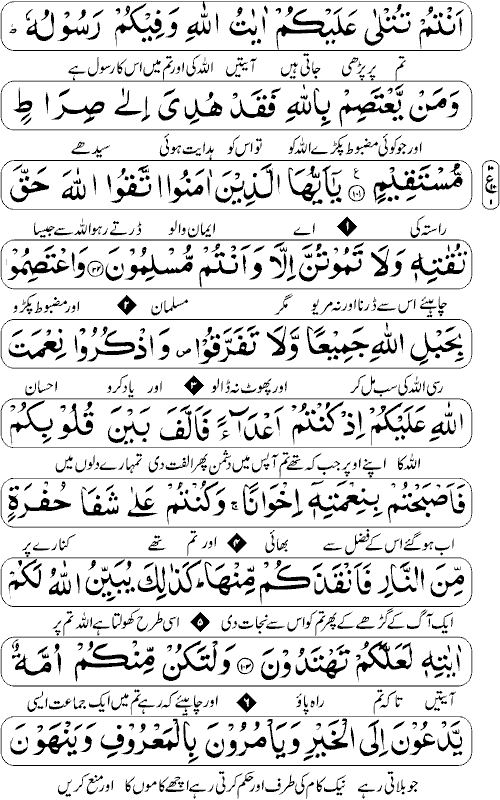 اَنْتُمْ تُتْلٰى عَلَيْكُمْ اٰيٰتُ اللّٰهِ وَفِيْكُمْ رَسُوْلُهٗ ؕ
تم پر پڑھی جاتی ہیں آیتیں اللہ کی اور تم میں اس کا رسول ہے
وَمَنْ يَّعْتَصِمْ بِاللّٰهِ فَقَدْ هُدِىَ اِلٰى صِرَاطٍ
اور جو کوئی مضبوط پکڑے اللہ کو تو اس کو ہدایت ہوئی سیدھے
مُّسْتَقِيْمٍ ۝۱۰۱ يٰۤاَيُّهَا الَّذِيْنَ اٰمَنُوا اتَّقُوا اللّٰهَ حَقَّ
راستہ کی ۱ اے ایمان والو ڈرتے رہو اللہ سے جیسا
تُقٰتِهٖ وَلَا تَمُوْتُنَّ اِلَّا وَاَنْتُمْ مُّسْلِمُوْنَ ۝۱۰۲ وَاعْتَصِمُوْا
چاہئیے اس سے ڈرنا اور نہ مریو مگر مسلمان ۲ اور مضبوط پکڑو
بِحَبْلِ اللّٰهِ جَمِيْعًا وَّلَا تَفَرَّقُوْا ۪ وَاذْكُرُوْا نِعْمَتَ
رسی اللہ کی سب مل کر اور پھوٹ نہ ڈالو ۳ اور یاد کرو احسان
اللّٰهِ عَلَيْكُمْ اِذْ كُنْتُمْ اَعْدَآءً فَاَلَّفَ بَيْنَ قُلُوْبِكُمْ
اللہ کا اپنے اوپر جب کہ تھے تم آپس میں دشمن پھر الفت دی تمہارے دلوں میں
فَاَصْبَحْتُمْ بِنِعْمَتِهٖۤ اِخْوَانًا ۚ وَكُنْتُمْ عَلٰى شَفَا حُفْرَةٍ
اب ہو گئے اس کے فضل سے بھائی ۴ اور تم تھے کنارے پر
مِّنَ النَّارِ فَاَنْقَذَكُمْ مِّنْهَا ؕ كَذٰلِكَ يُبَيِّنُ اللّٰهُ لَكُمْ
ایک آگ کے گڑھے کے پھر تم کو اس سے نجات دی ۵ اسی طرح کھولتا ہے اللہ تم پر
اٰيٰتِهٖ لَعَلَّكُمْ تَهْتَدُوْنَ ۝۱۰۳ وَلْتَكُنْ مِّنْكُمْ اُمَّةٌ
آیتیں تاکہ تم راہ پاؤ ۶ اور چاہئیے کہ رہے تم میں ایک جماعت ایسی
يَّدْعُوْنَ اِلَى الْخَيْرِ وَيَاْمُرُوْنَ بِالْمَعْرُوْفِ وَيَنْهَوْنَ
جو بلاتی رہے نیک کام کی طرف اور حکم کرتی رہے اچھے کاموں کا اور منع کریں